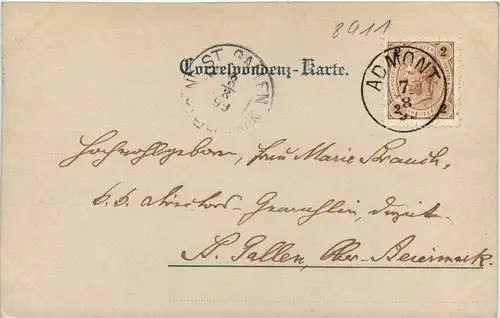 8911
Correspondenz-Karte.
ST GALLEN
ADMONT
7
8
2 2
2 2
Hochwohlgeboren, Frau Marie Brauch,
k. k. Directors-Gemahlin, dzt.
St. Gallen, Ober-Steiermark.